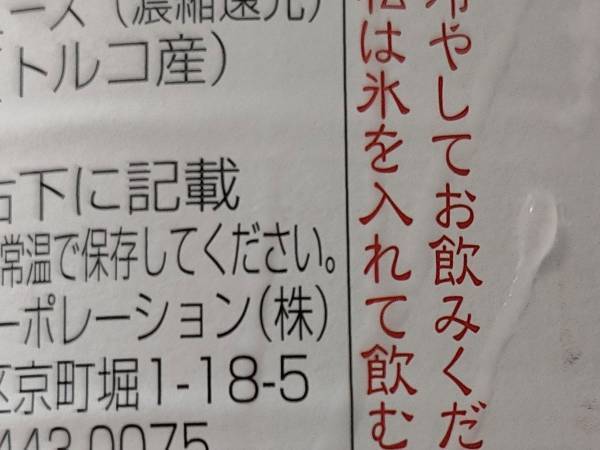 ース（濃縮還元）
（トルコ産）
右下に記載
常温で保存してください。
ーポレーション(株)
区京町堀1-18-5
443 0075
冷やしてお飲みくだ
私は氷を入れて飲む